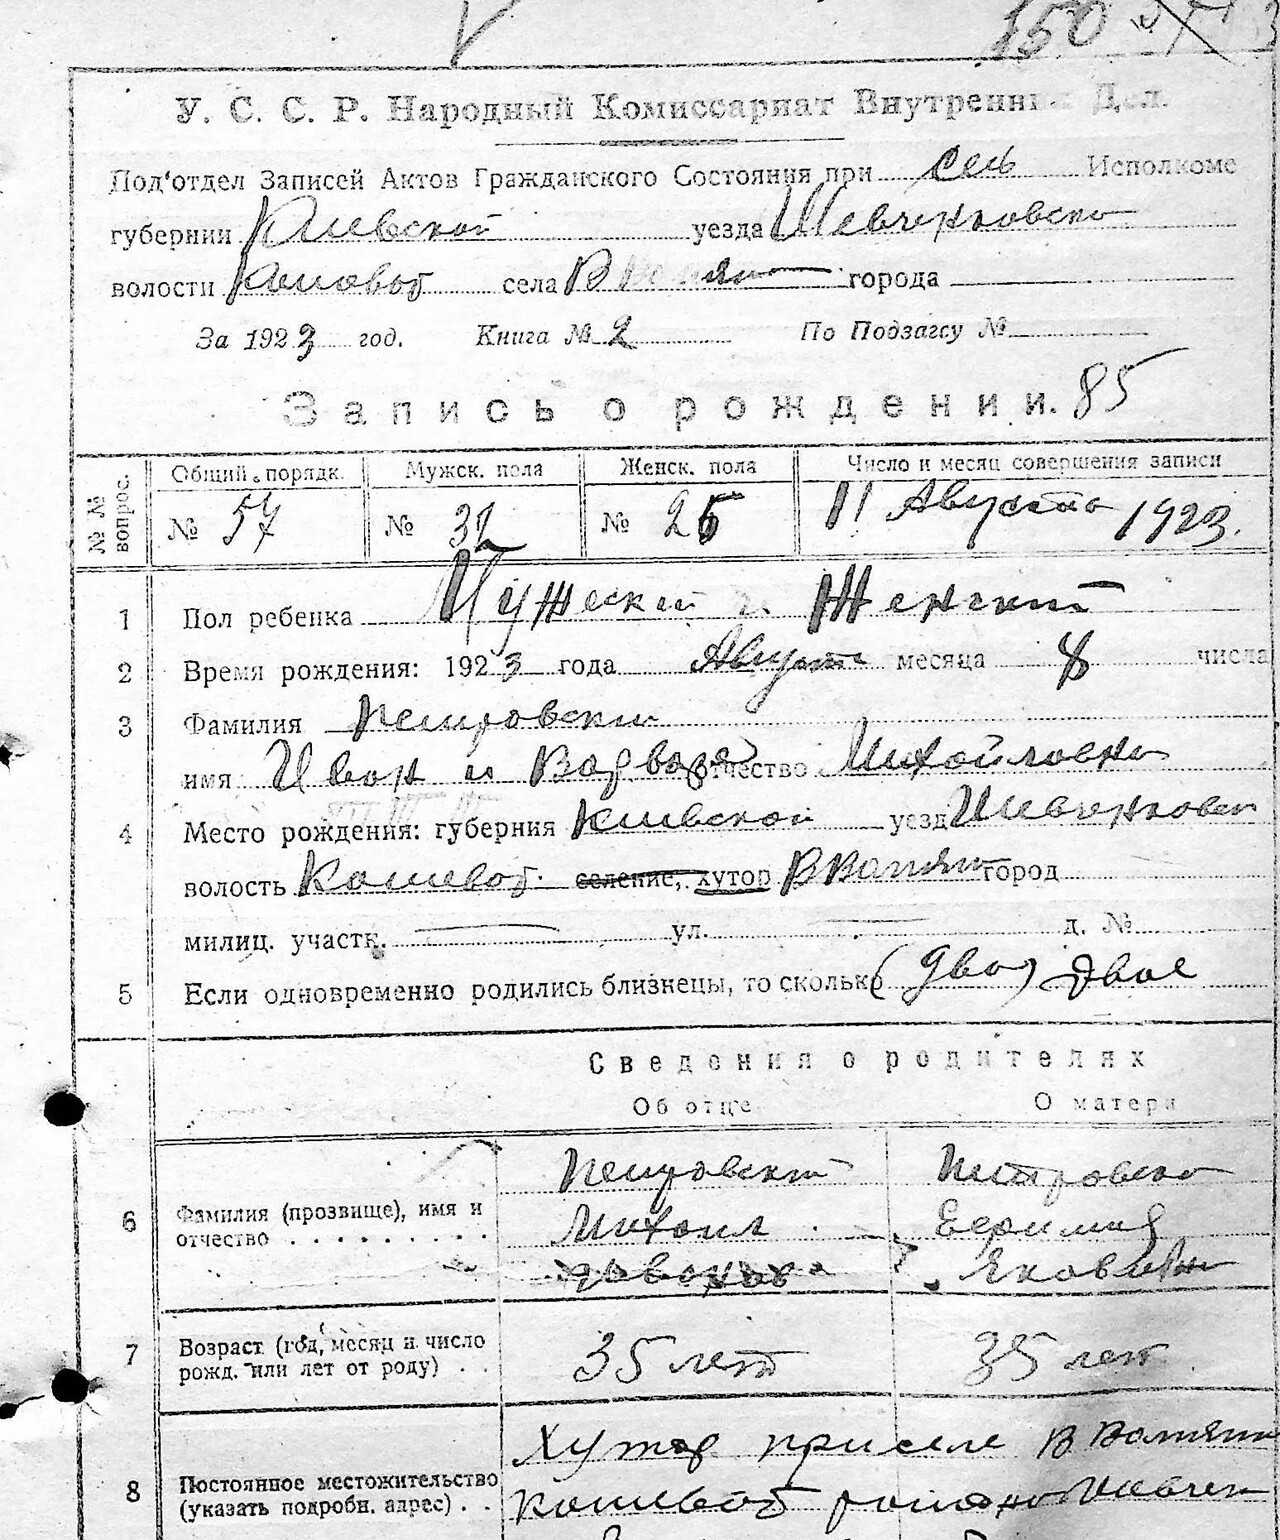 150
У. С. С. Р. Народный Комиссариат Внутренних Дел.
Под'отдел Записей Актов Гражданского Состояния при сель Исполкоме
губернии Киевской уезда Шевченковско
волости села В города
За 1923 год. Книга № 2 По Подзагсу №
Запись о рождении. 85
№ № вопрос.
Общий порядк. Мужск. пола Женск. пола Число и месяц совершения записи
№ 57 № 32 № 25 11 Августа 1923.
1 Пол ребенка Мужески и Женский
2 Время рождения: 1923 года Августа месяца 8 числа
3 Фамилия Петровский
имя Иван и Варвара отчество Михайловна
4 Место рождения: губерния Киевской уезд Шевченковск
волость селение, хутор город
милиц. участк. ул. д. №
5 Если одновременно родились близнецы, то сколько (два) двое
Сведения о родителях
Об отце О матери
6 Фамилия (прозвище), имя и отчество
Петровский Петровска
Михаил
7 Возраст (год, месяц и число рожд. или лет от роду)
35 лет 35 лет
8 Постоянное местожительство (указать подробн. адрес)
Хутор при селе В
района Шевчен